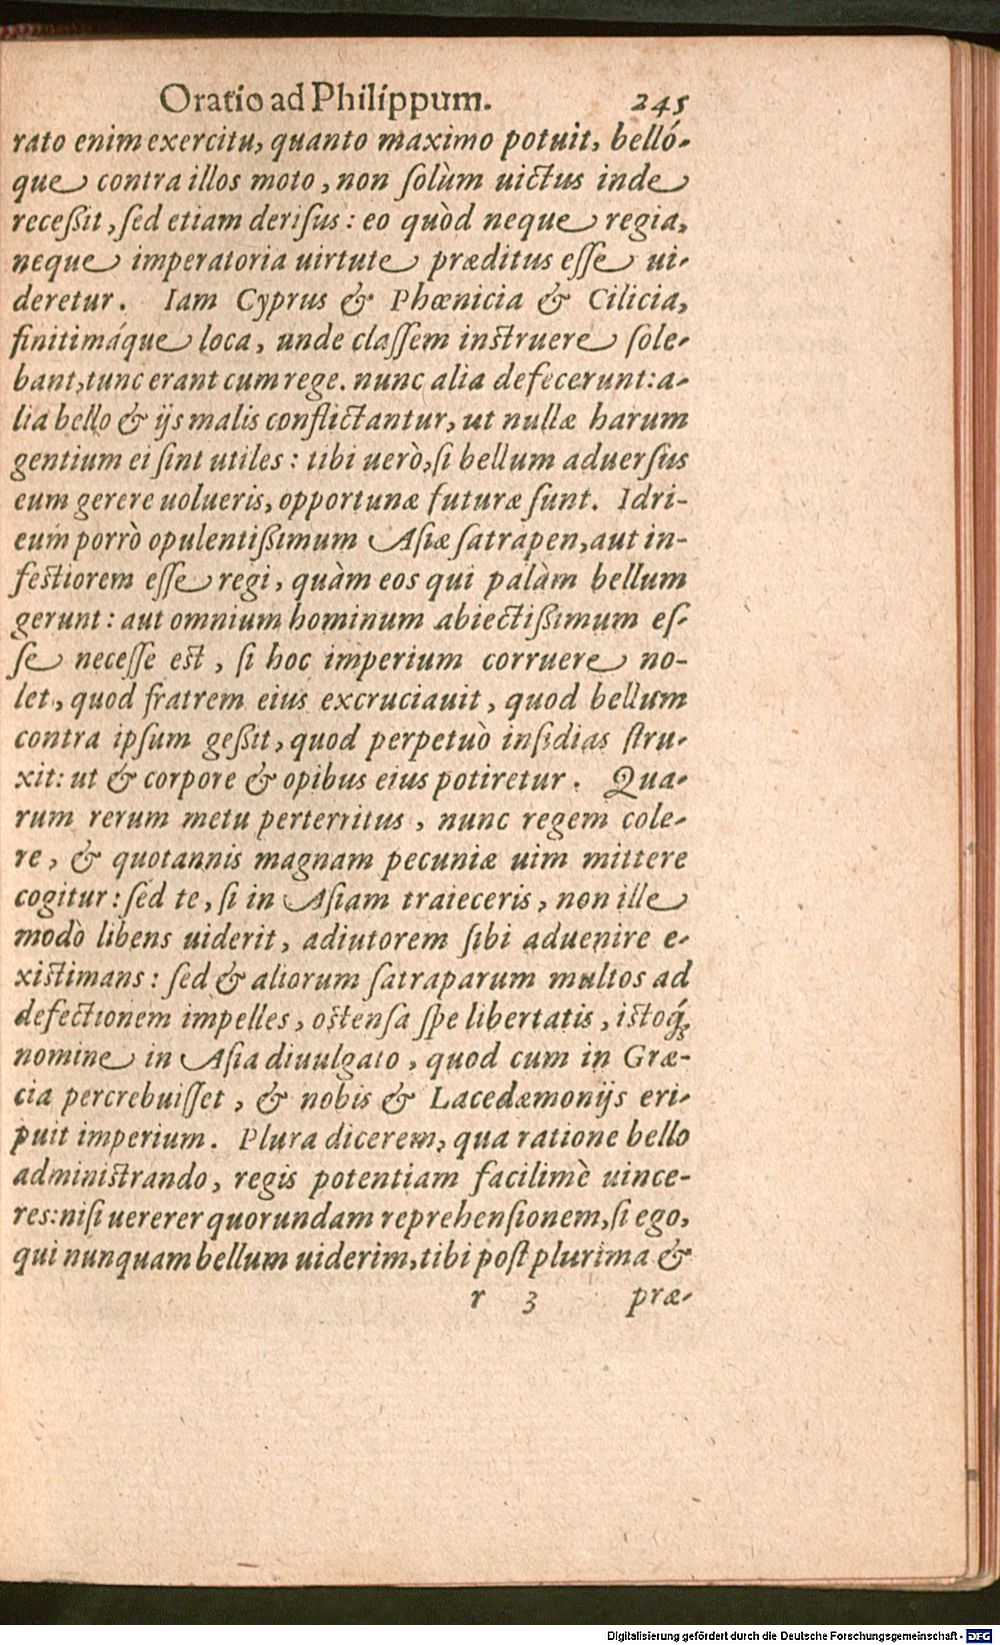 Oratio ad Philippum. 245
rato enim exercitu, quanto maximo potuit, belló-
que contra illos moto, non ſolùm uictus inde
receßit, ſed etiam deriſus: eo quòd neque regia,
neque imperatoria uirtute præditus eſſe ui-
deretur. Iam Cyprus & Phœnicia & Cilicia,
finitimáque loca, unde claſſem inſtruere ſole-
bant, tunc erant cum rege. nunc alia defecerunt: a-
lia bello & ijs malis conflictantur, ut nullæ harum
gentium ei ſint utiles: tibi uerò, ſi bellum aduerſus
eum gerere uolueris, opportunæ futuræ ſunt. Idri-
eum porrò opulentißimum Aſiæ ſatrapen, aut in-
feſtiorem eſſe regi, quàm eos qui palàm bellum
gerunt: aut omnium hominum abiectißimum eſ-
ſe neceſſe eſt, ſi hoc imperium corruere no-
let, quod fratrem eius excruciauit, quod bellum
contra ipſum geßit, quod perpetuò inſidias ſtru-
xit: ut & corpore & opibus eius potiretur. Qua-
rum rerum metu perterritus, nunc regem cole-
re, & quotannis magnam pecuniæ uim mittere
cogitur: ſed te, ſi in Aſiam traieceris, non ille
modò libens uiderit, adiutorem ſibi aduenire e-
xiſtimans: ſed & aliorum ſatraparum multos ad
defectionem impelles, oſtenſa ſpe libertatis, iſtoq́;
nomine in Aſia diuulgato, quod cum in Græ-
cia percrebuiſſet, & nobis & Lacedæmonijs eri-
puit imperium. Plura dicerem, qua ratione bello
adminiſtrando, regis potentiam facilimè uince-
res: niſi uererer quorundam reprehenſionem, ſi ego,
qui nunquam bellum uiderim, tibi poſt plurima &
r 3 præ-
Digitalisierung gefördert durch die Deutsche Forschungsgemeinschaft - DFG